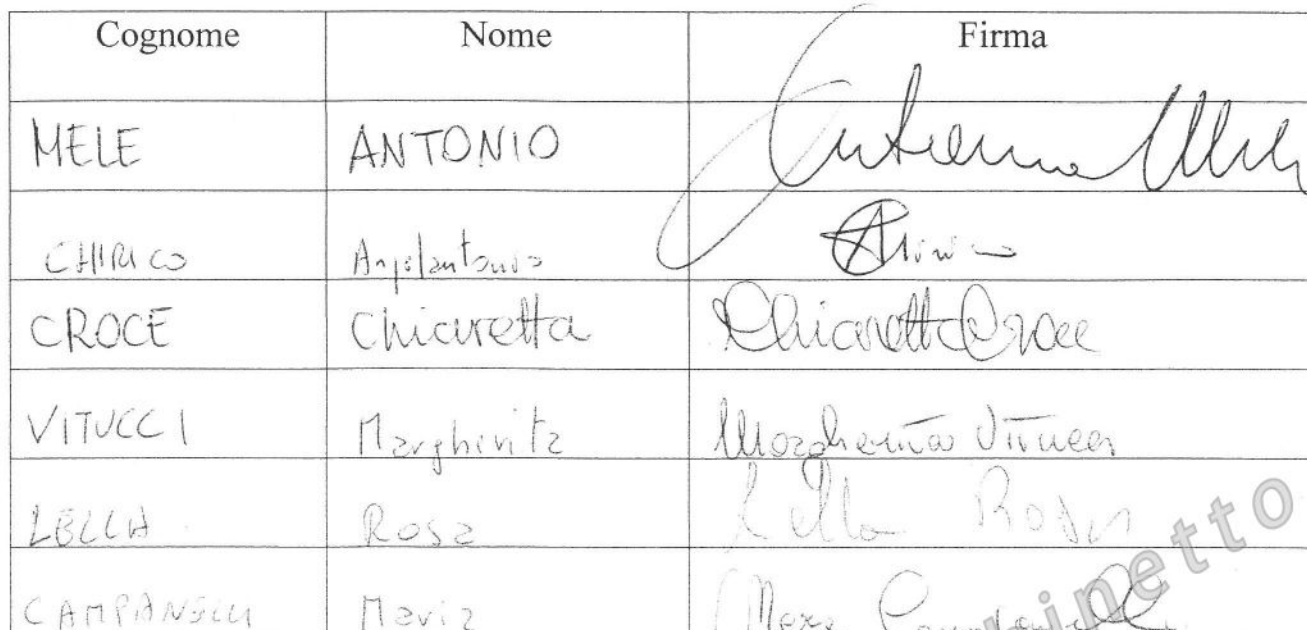 Cognome Nome Firma
MELE ANTONIO Antonio Mele
CHIRICO Angelantonio Chirico
CROCE Chiaretta Chiaretta Croce
VITUCCI Margherita Margherita Vitucci
LELLA Rosa Lella Rosa
CAMPANELLI Maria Maria Campanelli